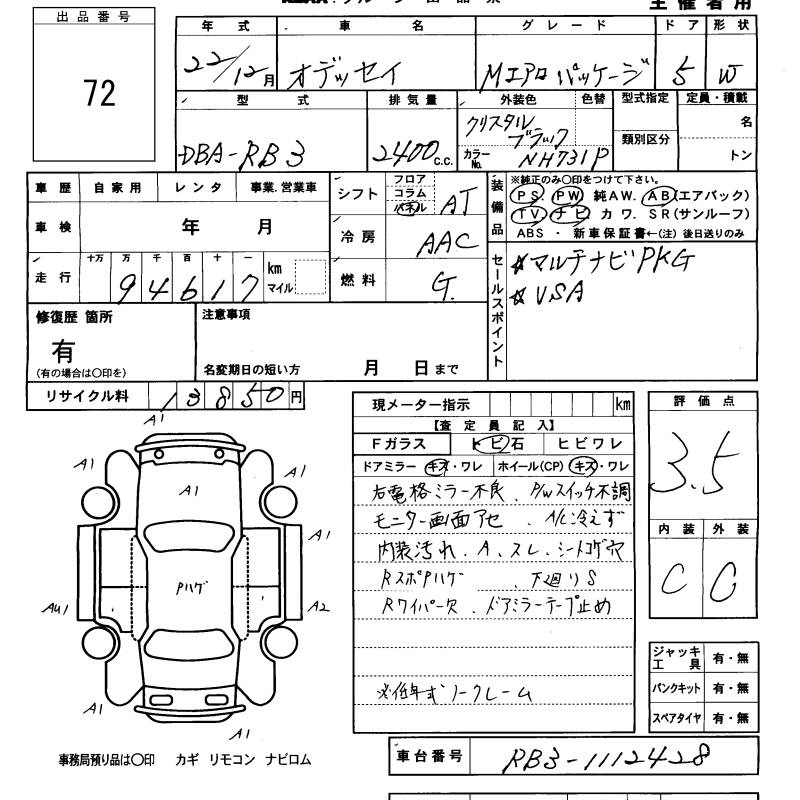 主催者用
出品番号
72
年式 車名 グレード ドア 形状
22/12月 オデッセイ Mエアロパッケージ 5 W
型式 排気量 外装色 色替 型式指定 定員・積載
DBA-RB3 2400c.c. クリスタルブラック 名
類別区分
カラーNo. NH731P トン
車歴 自家用 レンタ 事業.営業車
車検 年 月
走行 十万 万 千 百 十 一
94617 km マイル
シフト フロア コラム パネル AT
冷房 AAC
燃料 G.
装備品
※純正のみ〇印をつけて下さい。
PS. PW. 純AW. AB(エアバック)
TV ナビ カワ. SR(サンルーフ)
ABS ・ 新車保証書←(注) 後日送りのみ
セールスポイント
☆マルチナビPKG
☆VSA
修復歴 箇所
有
(有の場合は〇印を)
注意事項
名変期日の短い方 月 日まで
リサイクル料 13850円
現メーター指示 km
【査定員記入】
Fガラス トビ石 ヒビワレ
ドアミラー キズ・ワレ ホイール(CP) キズ・ワレ
右電格ミラー不良、P/Wスイッチ不調
モニター画面アセ、A/C冷えず
内装汚れ、A、スレ、シートコゲ穴
RスポPハゲ、下廻りS
Rワイパー欠、ドアミラーテープ止め
※低年式ノークレーム
評価点
3.5
内装 外装
C C
ジャッキ工具 有・無
パンクキット 有・無
スペアタイヤ 有・無
A1
A1
A1
A1
A1
Pハゲ
AU1
A2
A1
A1
事務局預り品は〇印 カギ リモコン ナビロム
車台番号 RB3-1112428